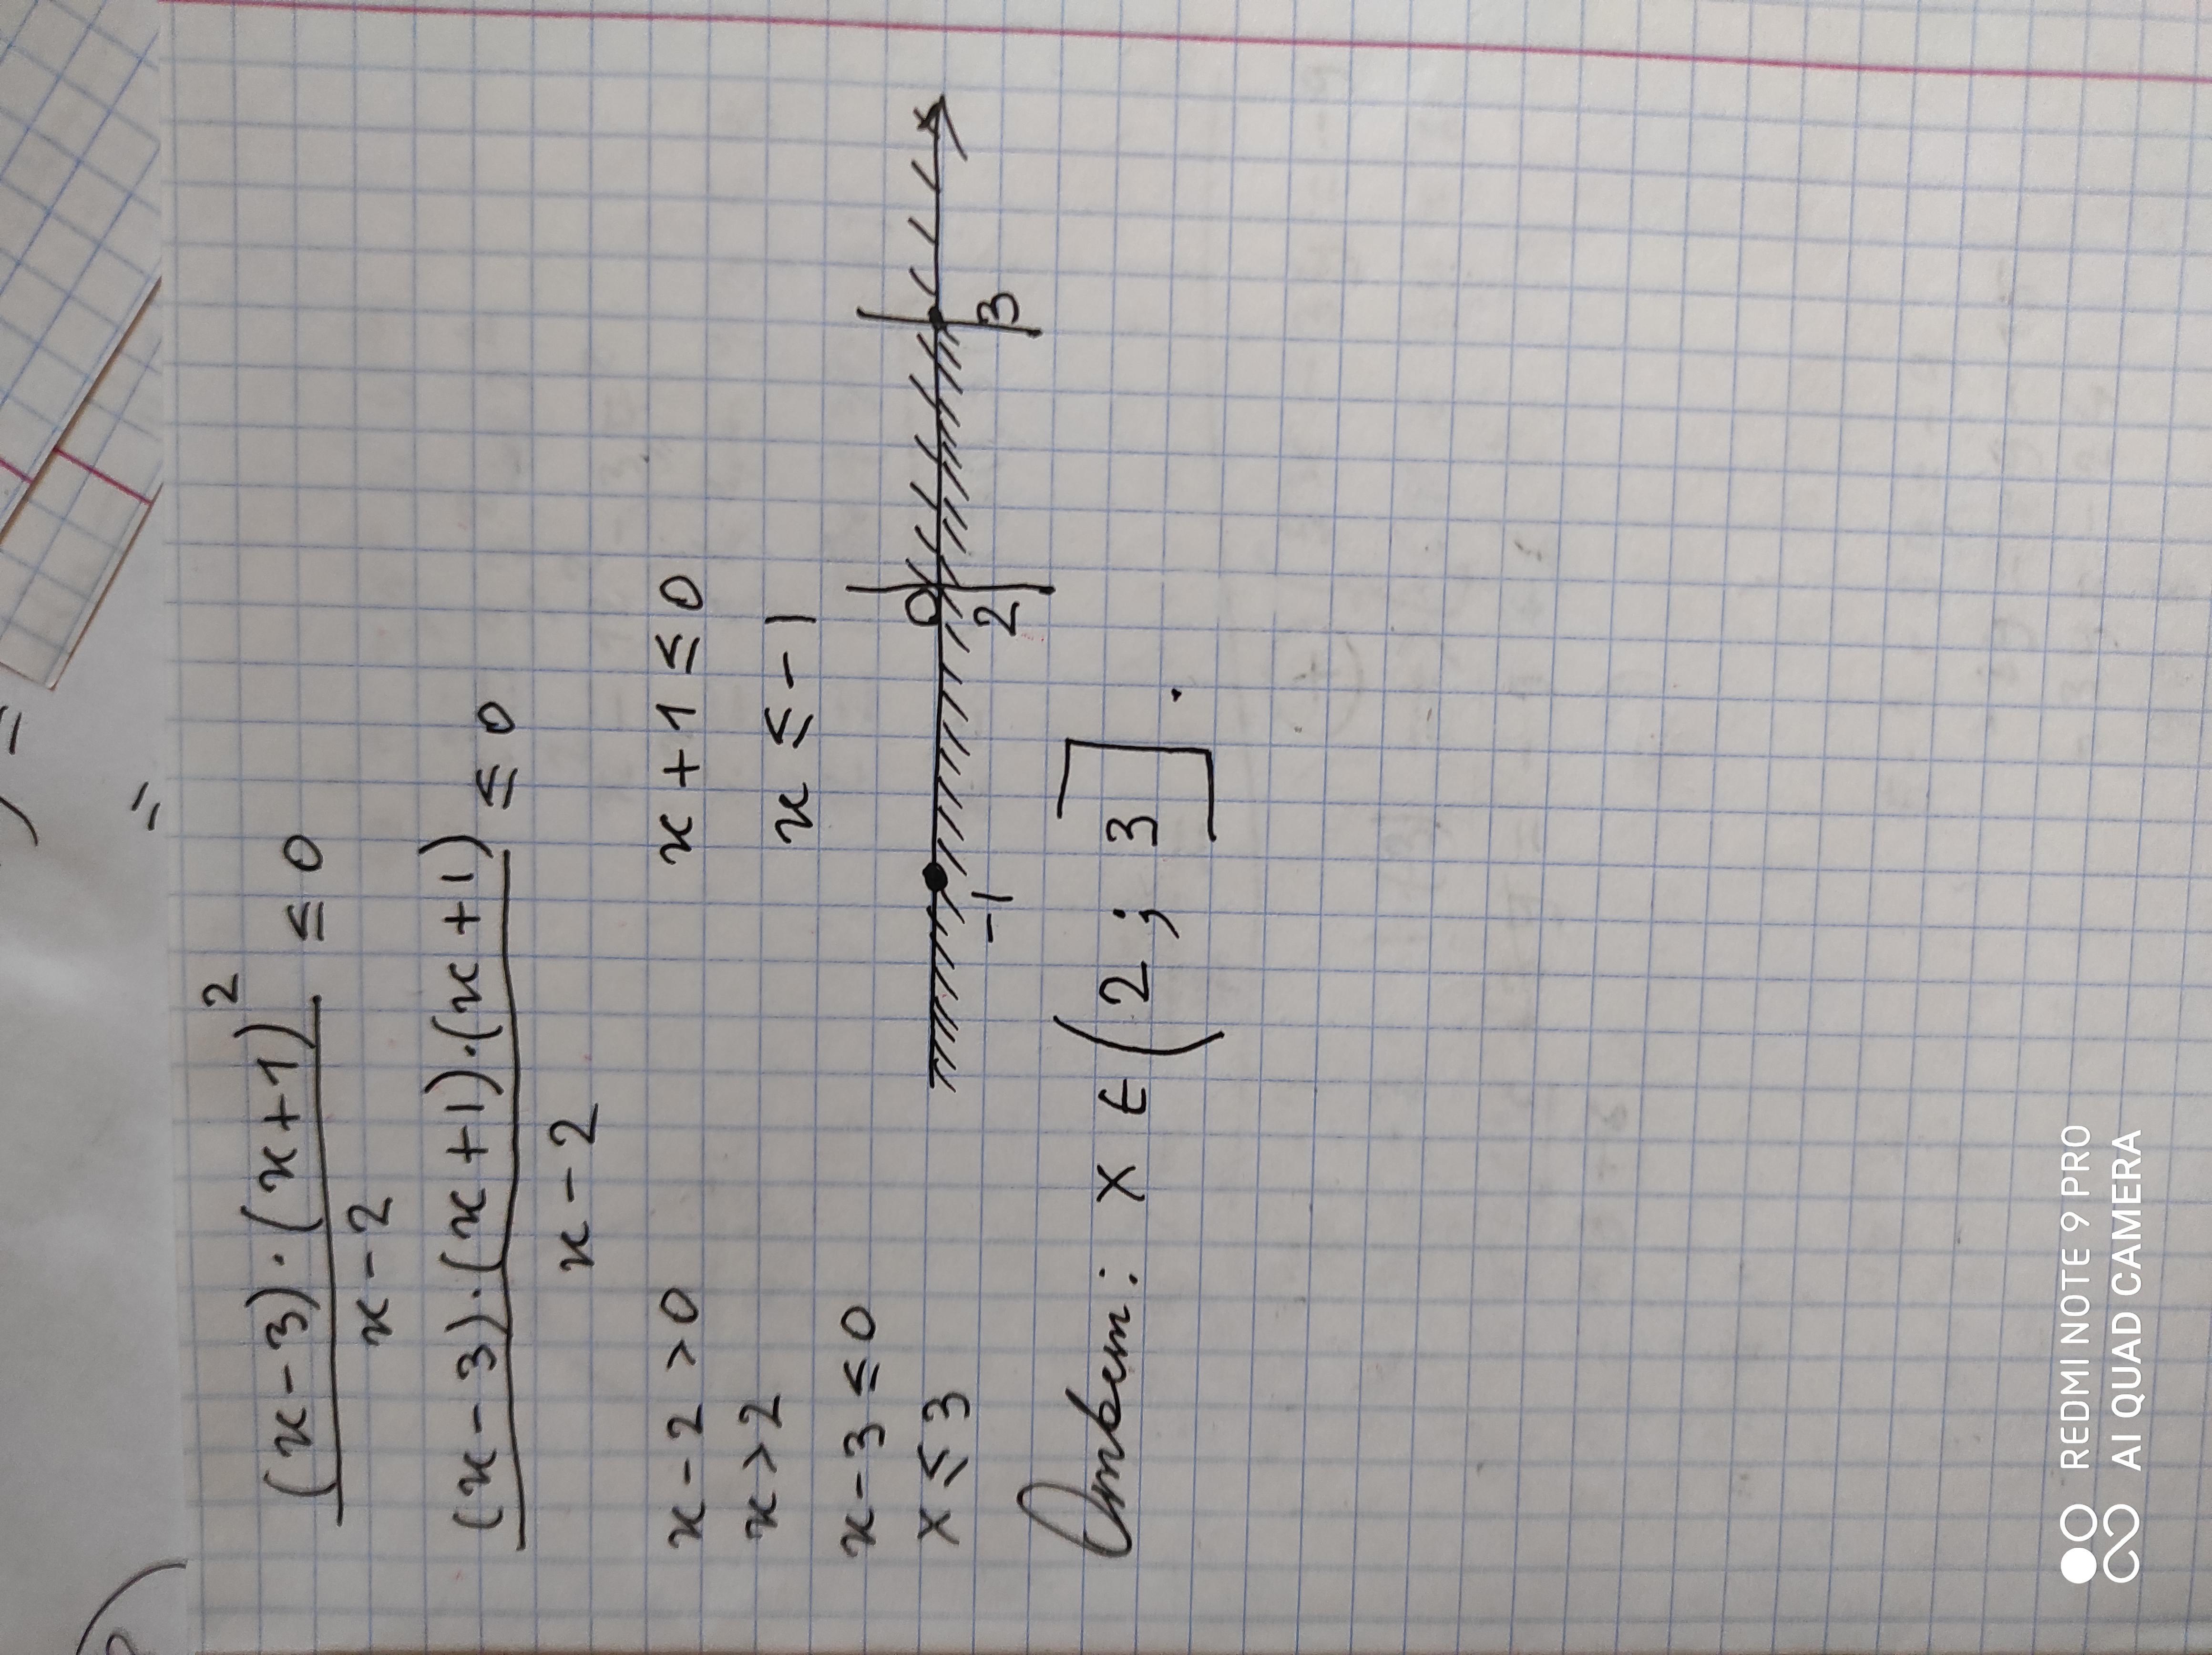 (x-3)·(x+1)² ≤ 0
x-2
(x-3)·(x+1)·(x+1) ≤ 0
x-2
x-2>0
x+1≤0
x>2
x≤-1
x-3≤0
x≤3
-1 2 3
Ответ: x ∈ (2; 3].
REDMI NOTE 9 PRO
AI QUAD CAMERA